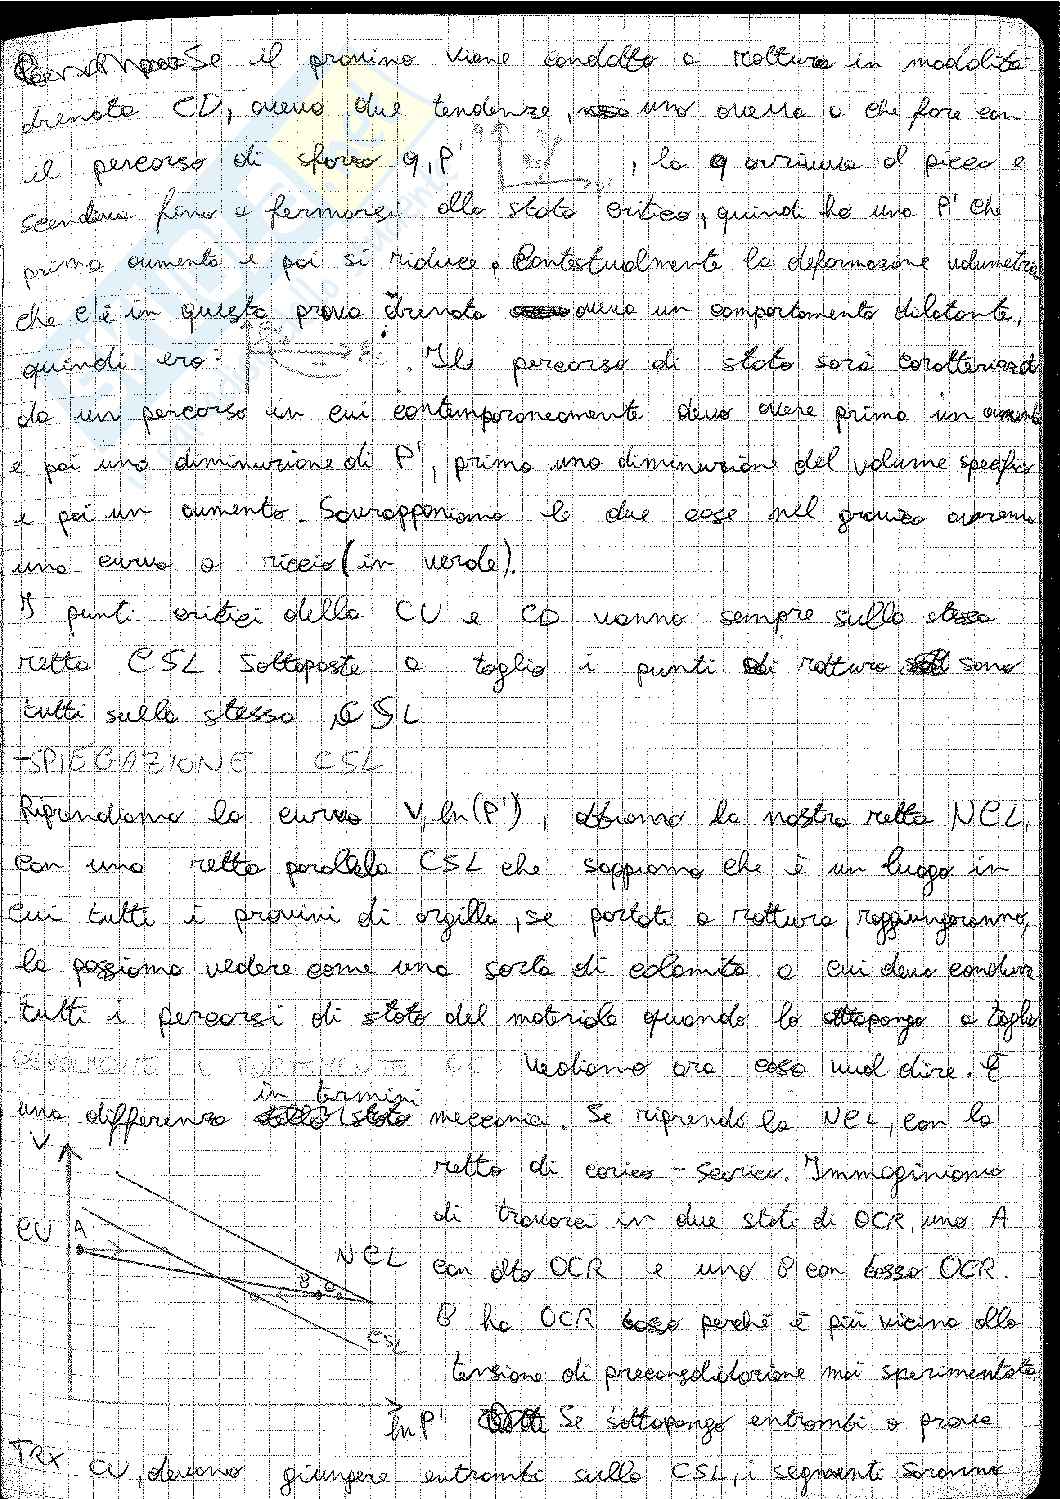 Se il provino viene condotto a rottura in modalità
drenata CD, aveva due tendenze, una aveva a che fare con
il percorso di sforzo q, P' , la q arrivava al picco e
scendeva fino a fermarsi allo stato critico, quindi ho una P' che
prima aumenta e poi si riduce. Contestualmente la deformazione volumetri
che c'è in questa prova drenata aveva un comportamento dilatante,
quindi ero: . Il percorso di stato sarà caratterizzato
da un percorso in cui contemporaneamente devo avere prima un aumento
e poi una diminuzione di P', prima una diminuzione del volume specifico
e poi un aumento. Sovrapponiamo le due cose nel grafico avremo
una curva a riccio (in verde).
I punti critici della CU e CD vanno sempre sulla stessa
retta CSL Sottoposte a taglio i punti di rottura sono
tutti sulla stessa CSL
SPIEGAZIONE CSL
Riprendiamo la curva V, ln(P'), abbiamo la nostra retta NCL,
con una retta parallela CSL che sappiamo che è un luogo in
cui tutti i provini di argilla, se portati a rottura, raggiungeranno,
la possiamo vedere come una sorta di calamita a cui devo condurre
tutti i percorsi di stato del materiale quando lo sottopongo a taglio
Vediamo ora cosa vuol dire. È
in termini
una differenza meccanica. Se riprendo la NCL, con la
V
retta di carico - scarico. Immaginiamo
di trovarci in due stati di OCR, uno A
CU A
NCL
con alto OCR e uno B con basso OCR.
B
B ha OCR basso perché è più vicino alla
CSL
tensione di preconsolidazione mai sperimentata
ln P' Se sottopongo entrambi a prova
TRX CU, devono giungere entrambi sulla CSL, i segmenti saranno